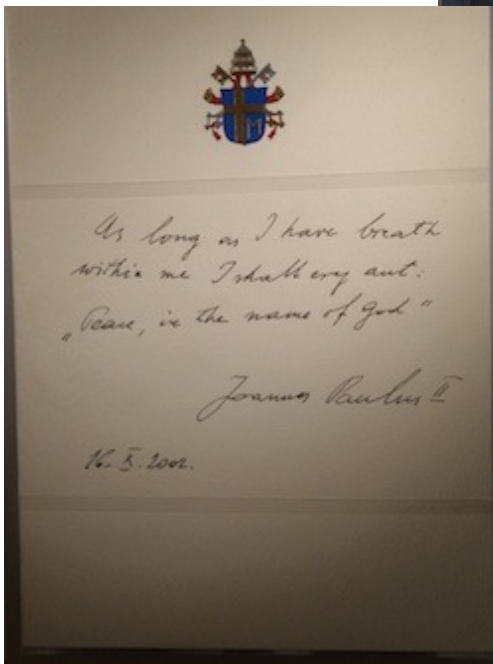 As long as I have breath
within me I shall cry out:
„Peace, in the name of God"
Joannes Paulus II
16. X. 2002.